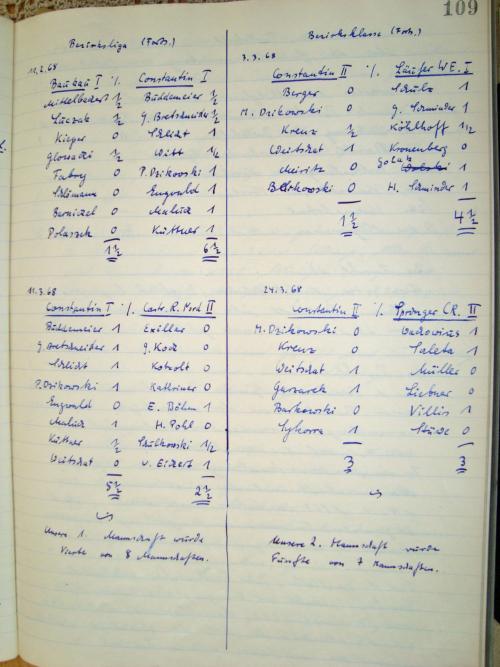 109
Bezirksliga (Forts.)
11.2.68
Baukau I % Constantin I
Mittelbachert ½ Büddemeier ½
Suczak ½ G. Bretschneider ½
Kieper 0 Schlicht 1
½ Witt 1/2
Farbog 0 P. Dzikowski 1
Schlömann 0 Engwald 1
Bernickel 0 Malich 1
Polaszek 0 Küttner 1
1½ 6½
11.3.68
Constantin I % Castr. R. Nord II
Büddemeier 1 Exiller 0
G. Bretschneider 1 G. Koch 0
Schlicht 1 Kotzolt 0
P. Dzikowski 1 Kathriner 0
Engwald 0 E. Böhm 1
Malich 1 H. Pohl 0
Küttner ½ Schulkowski 1/2
Weitschat 0 v. Eickert 1
5½ 2½
Unsere 1. Mannschaft wurde
Vierte von 8 Mannschaften.
Bezirksklasse (Forts.)
3.3.68
Constantin II % Läufer W.E. I
Berger 0 Schulz 1
M. Dzikowski 0 G. Schminder 1
Krenz ½ Köhlhoff 1/2
Weitschat 1 Kronenberg 0
Meiritz 0 Golak 1
Barkowski 0 H. Schminder 1
1½ 4½
24.3.68
Constantin II % Springer CR. II
M. Dzikowski 0 Wachowiak 1
Krenz 0 Saleta 1
Weitschat 1 Müller 0
Garzarek 1 Liebner 0
Barkowski 0 Villis 1
Sykorra 1 Stüwe 0
3 3
Unsere 2. Mannschaft wurde
Fünfte von 7 Mannschaften.